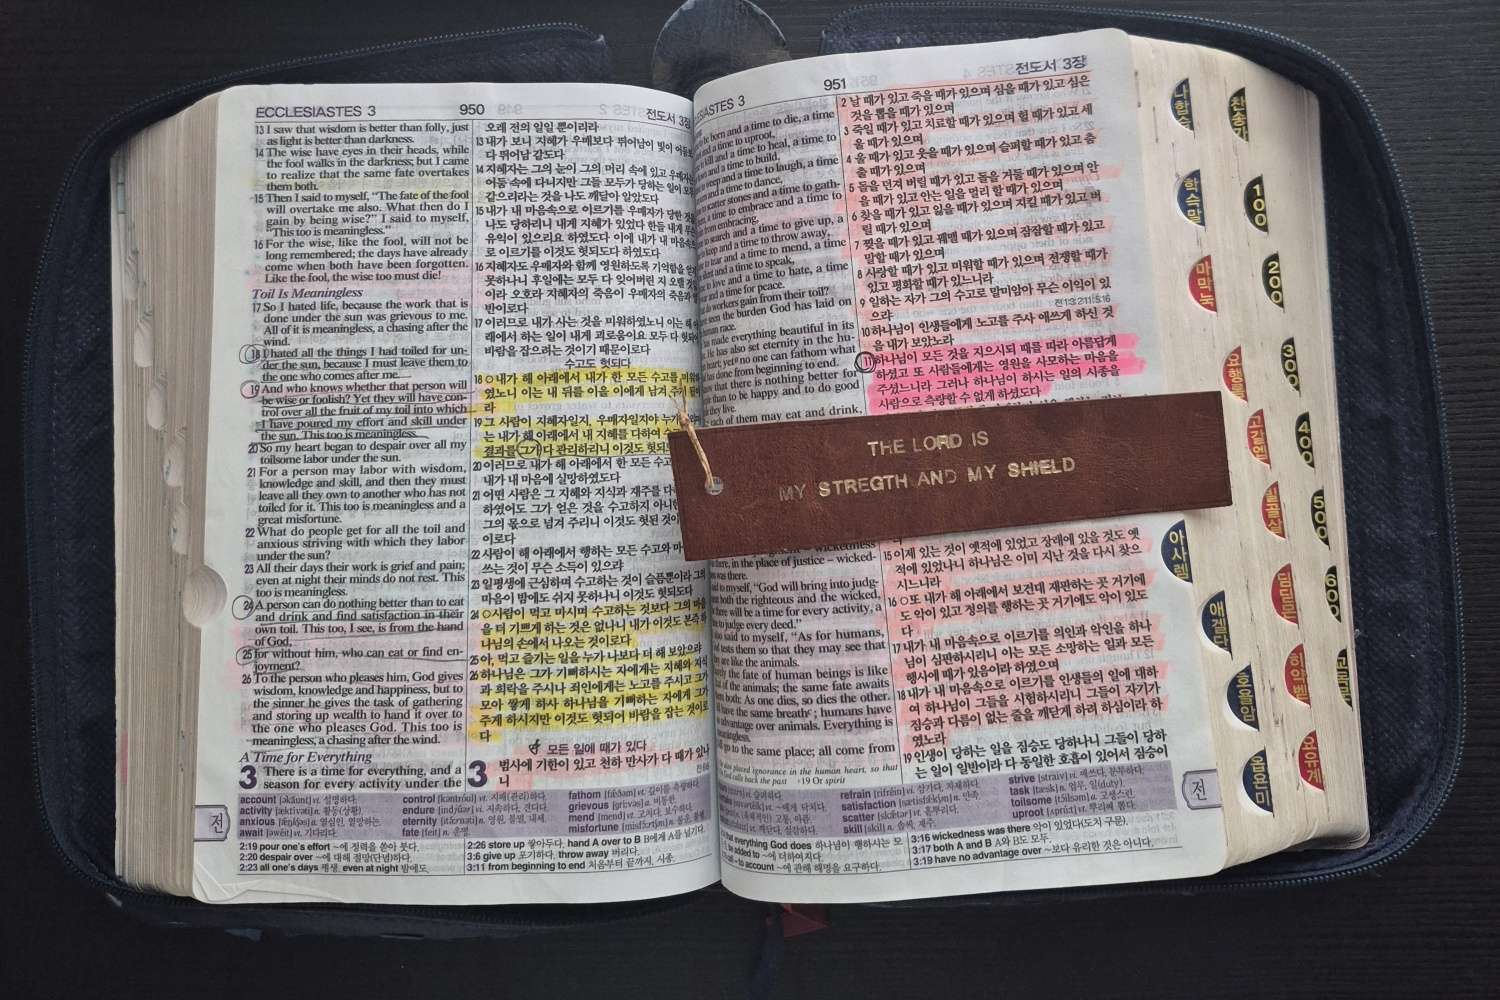 ECCLESIASTES 3
950
전도서 3장
13 I saw that wisdom is better than folly, just
as light is better than darkness.
14 The wise have eyes in their heads, while
the fool walks in the darkness; but I came
to realize that the same fate overtakes
them both.
15 Then I said to myself, "The fate of the fool
will overtake me also. What then do I
gain by being wise?" I said to myself,
"This too is meaningless."
16 For the wise, like the fool, will not be
long remembered; the days have already
come when both have been forgotten.
Like the fool, the wise too must die!
Toil Is Meaningless
17 So I hated life, because the work that is
done under the sun was grievous to me.
All of it is meaningless, a chasing after the
wind.
18 I hated all the things I had toiled for un-
der the sun, because I must leave them to
the one who comes after me.
19 And who knows whether that person will
be wise or foolish? Yet they will have con-
trol over all the fruit of my toil into which
I have poured my effort and skill under
the sun. This too is meaningless.
20 So my heart began to despair over all my
toilsome labor under the sun.
21 For a person may labor with wisdom,
knowledge and skill, and then they must
leave all they own to another who has not
toiled for it. This too is meaningless and a
great misfortune.
22 What do people get for all the toil and
anxious striving with which they labor
under the sun?
23 All their days their work is grief and pain;
even at night their minds do not rest. This
too is meaningless.
24 A person can do nothing better than to eat
and drink and find satisfaction in their
own toil. This too, I see, is from the hand
of God,
25 for without him, who can eat or find en-
joyment?
26 To the person who pleases him, God gives
wisdom, knowledge and happiness, but to
the sinner he gives the task of gathering
and storing up wealth to hand it over to
the one who pleases God. This too is
meaningless, a chasing after the wind.
A Time for Everything
3 There is a time for everything, and a
season for every activity under the
오래 전의 일일 뿐이리라
13 내가 보니 지혜가 우매보다 뛰어남이 빛이 어둠보
다 뛰어남 같도다
14 지혜자는 그의 눈이 그의 머리 속에 있고 우매자
어둠 속에 다니지만 그들 모두가 당하는 일이 모
같으리라는 것을 나도 깨달아 알았도다
15 내가 내 마음속으로 이르기를 우매자가 당한 것을
나도 당하리니 내게 지혜가 있었다 한들 내게 무슨
유익이 있으리요 하였도다 이에 내가 내 마음속으
로 이르기를 이것도 헛되도다 하였도다
16 지혜자도 우매자와 함께 영원하도록 기억함을 얻지
못하나니 후일에는 모두 다 잊어버린 지 오랠 것
이라 오호라 지혜자의 죽음이 우매자의 죽음과 일
반이로다
17 이러므로 내가 사는 것을 미워하였노니 이는 해 아
래에서 하는 일이 내게 괴로움이요 모두 다 헛되어
바람을 잡으려는 것이기 때문이로다
수고도 헛되다
18 ○내가 해 아래에서 내가 한 모든 수고를 미워하
였노니 이는 내 뒤를 이을 이에게 남겨 주게 됨이
라
19 그 사람이 지혜자일지, 우매자일지야 누가
는 내가 해 아래에서 내 지혜를 다하여
결과를 그가 다 관리하리니 이것도 헛되
20 이러므로 내가 해 아래에서 한 모든 수고
내가 내 마음에 실망하였도다
21 어떤 사람은 그 지혜와 지식과 재주를 다
하였어도 그가 얻은 것을 수고하지 아니한
그의 몫으로 넘겨 주리니 이것도 헛된 것이
이로다
22 사람이 해 아래에서 행하는 모든 수고와 마
쓰는 것이 무슨 소득이 있으랴
23 일평생에 근심하며 수고하는 것이 슬픔뿐이라 그의
마음이 밤에도 쉬지 못하나니 이것도 헛되도다
24 ○사람이 먹고 마시며 수고하는 것보다 그의 마음
을 더 기쁘게 하는 것은 없나니 내가 이것도 본즉 하
나님의 손에서 나오는 것이로다
25 아, 먹고 즐기는 일을 누가 나보다 더 해 보았으랴
26 하나님은 그가 기뻐하시는 자에게는 지혜와 지식
과 희락을 주시나 죄인에게는 노고를 주시고 그가
모아 쌓게 하사 하나님을 기뻐하는 자에게 그가
주게 하시지만 이것도 헛되어 바람을 잡는 것이로
다
모든 일에 때가 있다
3 범사에 기한이 있고 천하 만사가 다 때가 있나
니
전
account [əkáunt] vt. 설명하다.
activity [æktívəti] n. 활동(상황).
anxious [ǽŋkʃəs] a. 열심인, 열망하는.
await [əwéit] vt. 기다리다.
control [kəntróul] vt. 지배(관리)하다.
endure [indjúər] vt. 지속하다, 견디다.
eternity [itə́ːrnəti] n. 영원, 불멸, 내세.
fate [feit] n. 운명.
fathom [fǽðəm] vt. 깊이를 측량하다.
grievous [gríːvəs] a. 비통한.
mend [mend] vt. 고치다, 보수하다.
misfortune [misfɔ́ːrtʃən] n. 불운, 불행.
2:19 pour one's effort ~에 정력을 쏟아 붓다.
2:20 despair over ~에 대해 절망(단념)하다.
2:23 all one's days 평생. even at night 밤에도.
2:26 store up 쌓아두다. hand A over to B B에게 A를 넘기다.
3:6 give up 포기하다. throw away 버리다.
3:11 from beginning to end 처음부터 끝까지, 시종.
SIASTES 3
951
전도서 3장
be born and a time to die, a time
and a time to uproot,
kill and a time to heal, a time to
and a time to build,
weep and a time to laugh, a time
and a time to dance,
scatter stones and a time to gath-
a time to embrace and a time to
from embracing,
to search and a time to give up, a
keep and a time to throw away,
to tear and a time to mend, a time
silent and a time to speak,
to love and a time to hate, a time
and a time for peace.
do workers gain from their toil?
seen the burden God has laid on
human race.
made everything beautiful in its
He has also set eternity in the hu-
heart; yet no one can fathom what
has done from beginning to end.
know that there is nothing better for
than to be happy and to do good
they live.
each of them may eat and drink,
THE LORD IS
MY STREGTH AND MY SHIELD
there, in the place of justice – wicked-
was there.
said to myself, "God will bring into judg-
both the righteous and the wicked,
there will be a time for every activity, a
to judge every deed."
also said to myself, "As for humans,
tests them so that they may see that
are like the animals.
the fate of human beings is like
of the animals; the same fate awaits
them both: As one dies, so dies the other.
have the same breath; humans have
advantage over animals. Everything is
meaningless.
go to the same place; all come from
placed ignorance in the human heart, so that
God calls back the past 19 Or spirit
2 날 때가 있고 죽을 때가 있으며 심을 때가 있고 심은
것을 뽑을 때가 있으며
3 죽일 때가 있고 치료할 때가 있으며 헐 때가 있고 세
울 때가 있으며
4 울 때가 있고 웃을 때가 있으며 슬퍼할 때가 있고 춤
출 때가 있으며
5 돌을 던져 버릴 때가 있고 돌을 거둘 때가 있으며 안
을 때가 있고 안는 일을 멀리 할 때가 있으며
6 찾을 때가 있고 잃을 때가 있으며 지킬 때가 있고 버
릴 때가 있으며
7 찢을 때가 있고 꿰맬 때가 있으며 잠잠할 때가 있고
말할 때가 있으며
8 사랑할 때가 있고 미워할 때가 있으며 전쟁할 때가
있고 평화할 때가 있느니라
9 일하는 자가 그의 수고로 말미암아 무슨 이익이 있
으랴
전1:3;2:11;5:16
10 하나님이 인생들에게 노고를 주사 애쓰게 하신 것
을 내가 보았노라
11 하나님이 모든 것을 지으시되 때를 따라 아름답게
하셨고 또 사람들에게는 영원을 사모하는 마음을
주셨느니라 그러나 하나님이 하시는 일의 시종을
사람으로 측량할 수 없게 하셨도다
15 이제 있는 것이 옛적에 있었고 장래에 있을 것도 옛
적에 있었나니 하나님은 이미 지난 것을 다시 찾으
시느니라
16 ○또 내가 해 아래에서 보건대 재판하는 곳 거기에
도 악이 있고 정의를 행하는 곳 거기에도 악이 있도
다
17 내가 내 마음속으로 이르기를 의인과 악인을 하나
님이 심판하시리니 이는 모든 소망하는 일과 모든
행사에 때가 있음이라 하였으며
18 내가 내 마음속으로 이르기를 인생들의 일에 대하
여 하나님이 그들을 시험하시리니 그들이 자기가
짐승과 다름이 없는 줄을 깨닫게 하려 하심이라 하
였노라
19 인생이 당하는 일을 짐승도 당하나니 그들이 당하
는 일이 일반이라 다 동일한 호흡이 있어서 짐승이
refrain [rifréin] vi. 삼가다, 자제하다.
satisfaction [sætisfǽkʃən] n. 만족.
scatter [skǽtər] vt. 흩뿌리다.
skill [skil] n. 솜씨, 재주.
strive [straiv] vi. 애쓰다, 분투하다.
task [tæsk] n. 임무, 일(duty).
toilsome [tɔ́ilsəm] a. 고생스런.
uproot [ʌprúːt] vt. 뿌리째 뽑다.
전
that everything God does 하나님이 행하시는 모
be added to ~에 더하여지다
call ~ to account ~에 관해 해명을 요구하다.
3:16 wickedness was there 악이 있었다(도치 구문).
3:17 both A and B A와 B도 모두.
3:19 have no advantage over ~보다 유리한 것은 아니다.
나합
학슥말
마막눅
요행롬
고갈엡
빌골살
아사렘
애겔단
호욜암
옵욘미
딤딛몬
히약벧
요유계
찬송가
100
200
300
400
500
600
교독문